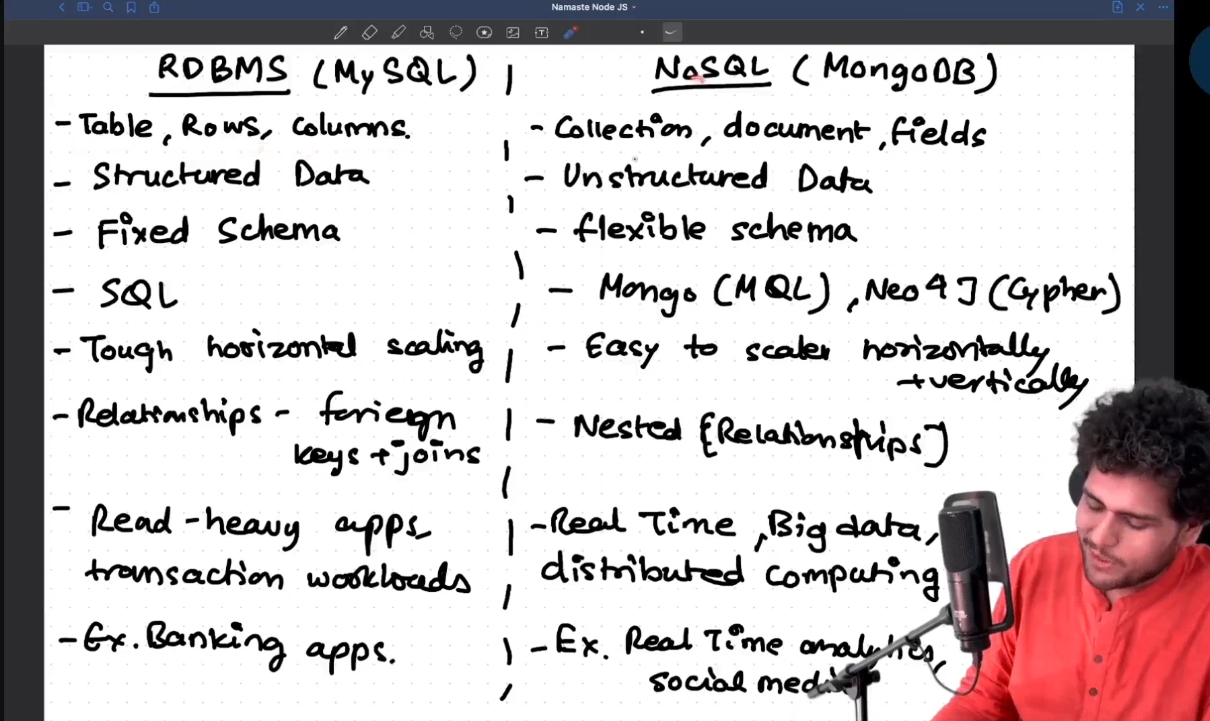 Namaste Node JS
RDBMS (MySQL)
- Table, Rows, Columns.
- Structured Data
- Fixed Schema
- SQL
- Tough horizontal scaling
- Relationships - foriegn
keys + joins
- Read-heavy apps,
transaction workloads
- Ex. Banking apps.
NoSQL (MongoDB)
- Collection, document, fields
- Unstructured Data
- flexible schema
- Mongo (MQL), Neo4J (Cypher)
- Easy to scale horizontally
+ vertically
- Nested [Relationships]
- Real Time, Big data,
distributed computing
- Ex. Real Time analytics,
social media